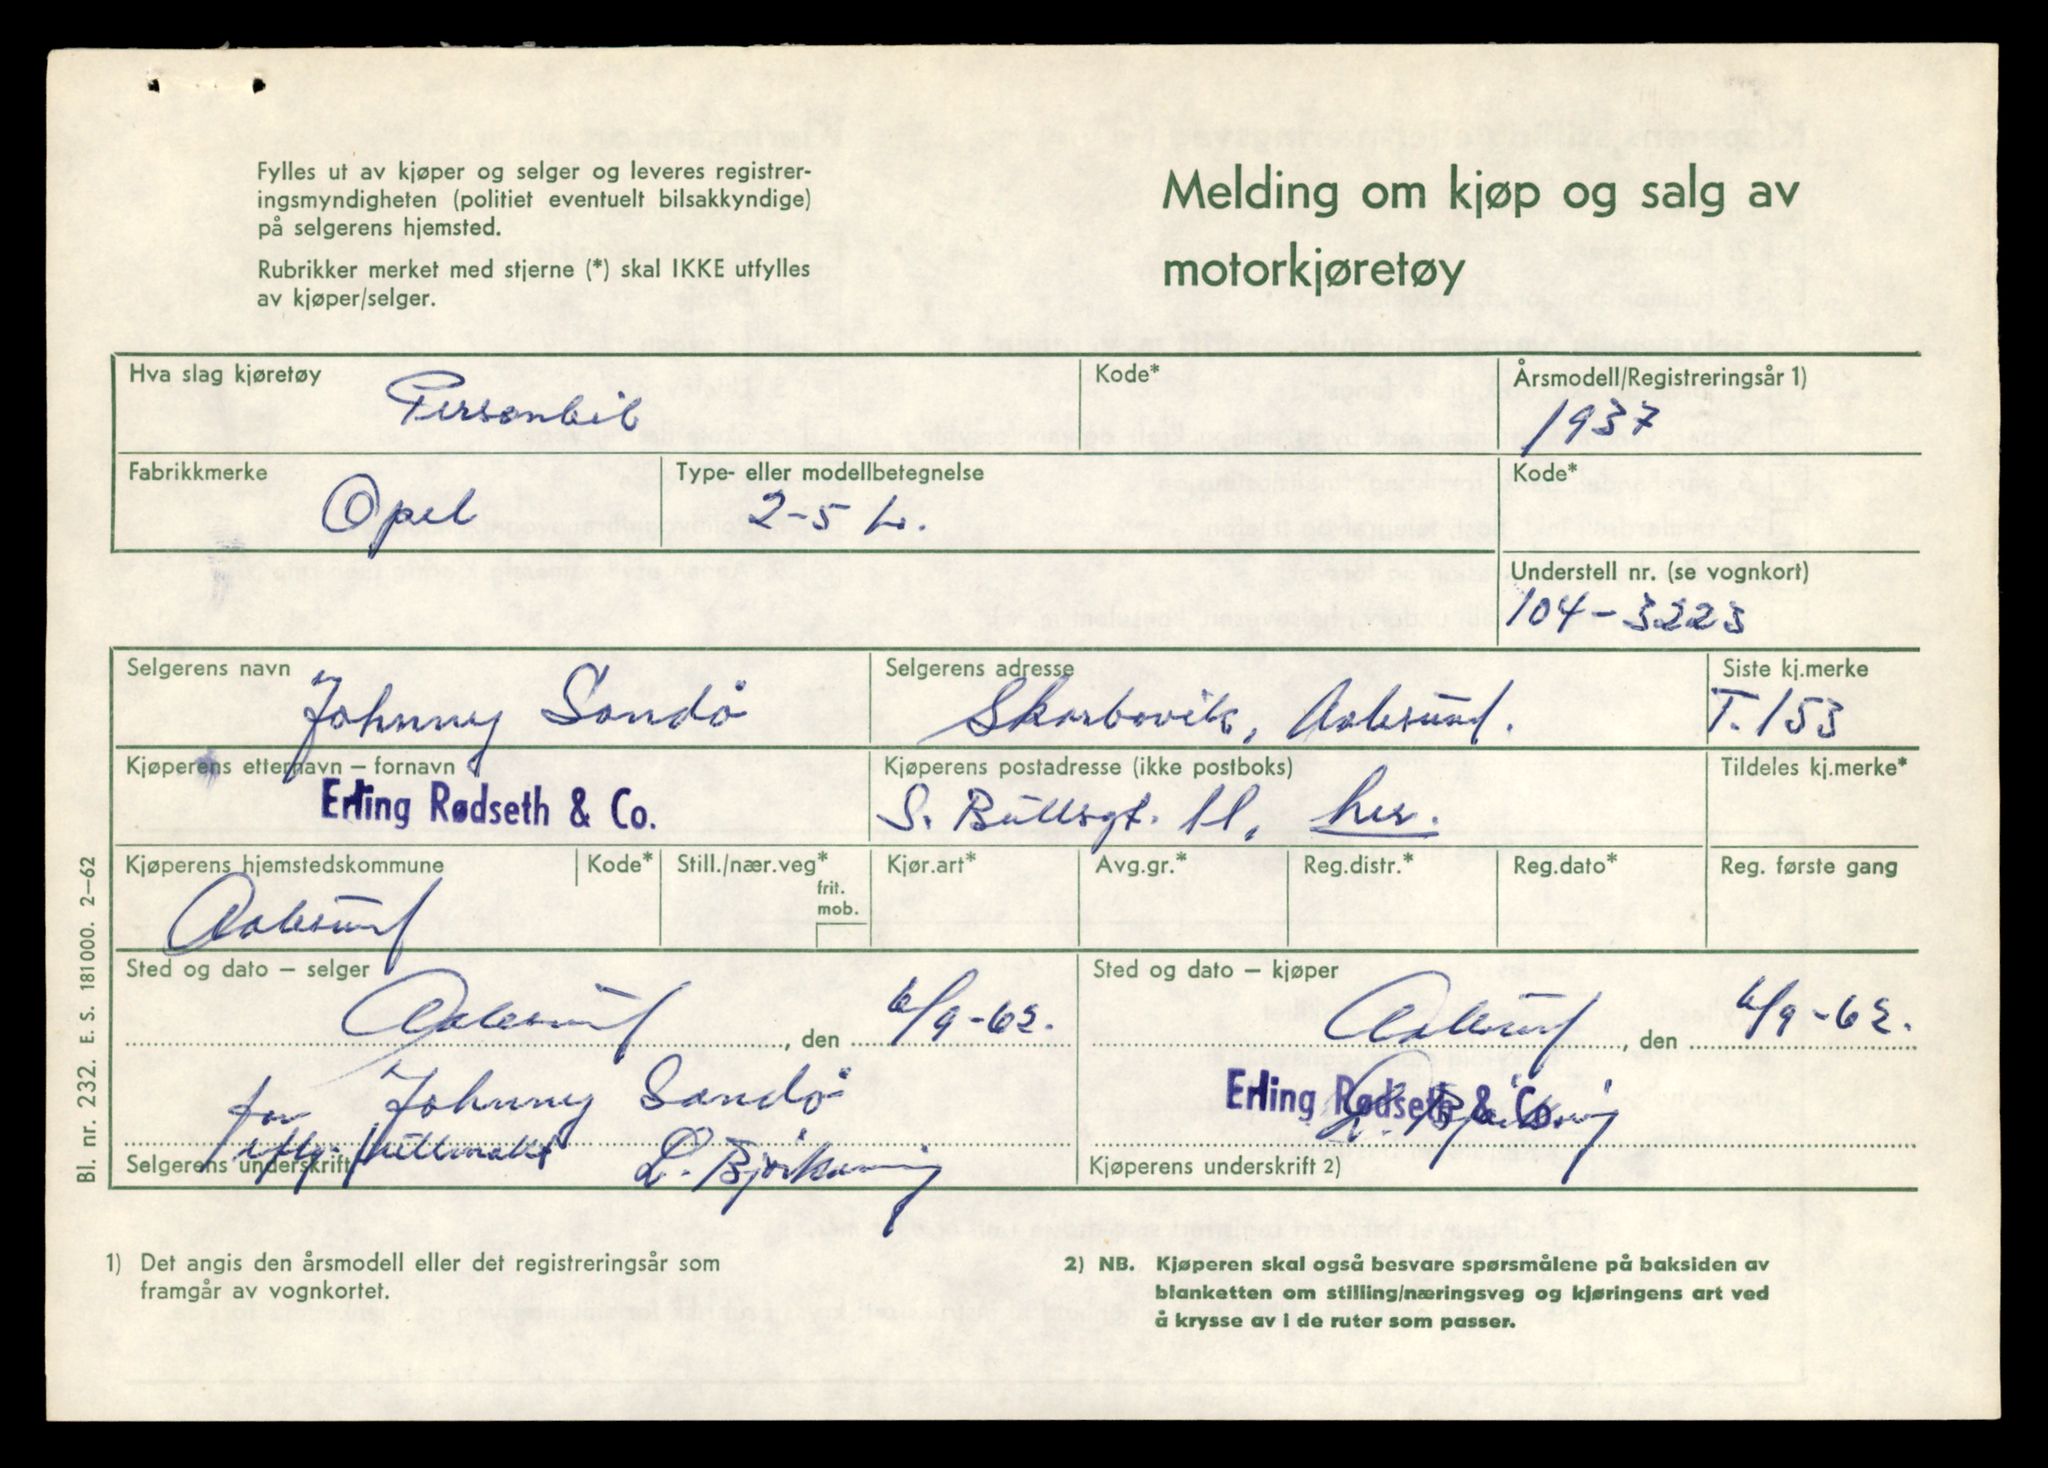 Fylles ut av kjøper og selger og leveres registrer-
ingsmyndigheten (politiet eventuelt bilsakkyndige)
på selgerens hjemsted.
Rubrikker merket med stjerne (*) skal IKKE utfylles
av kjøper/selger.
Melding om kjøp og salg av
motorkjøretøy
Hva slag kjøretøy
Personbil
Kode*
Årsmodell/Registreringsår 1)
1937
Fabrikkmerke
Opel
Type- eller modellbetegnelse
2-5 L.
Kode*
Understell nr. (se vognkort)
104-3223
Selgerens navn
Johnny Sandö
Selgerens adresse
Skarbøvik, Aalesund.
Siste kj.merke
T.153
Kjøperens etternavn – fornavn
Erling Rødseth & Co.
Kjøperens postadresse (ikke postboks)
S. Bullsgt. 11, her.
Tildeles kj.merke*
Kjøperens hjemstedskommune
Aalesund
Kode*
Still./nær.veg*
frit.
mob.
Kjør.art*
Avg.gr.*
Reg.distr.*
Reg.dato*
Reg. første gang
Sted og dato – selger
Aalesund, den 6/9-62.
for Johnny Sandö
iflg. fullmakt
Selgerens underskrift
Sted og dato – kjøper
Aalesund, den 6/9-62.
Erling Rødseth & Co.
Kjøperens underskrift 2)
1) Det angis den årsmodell eller det registreringsår som
framgår av vognkortet.
2) NB. Kjøperen skal også besvare spørsmålene på baksiden av
blanketten om stilling/næringsveg og kjøringens art ved
å krysse av i de ruter som passer.
Bl. nr. 232. E. S. 181000. 2–62